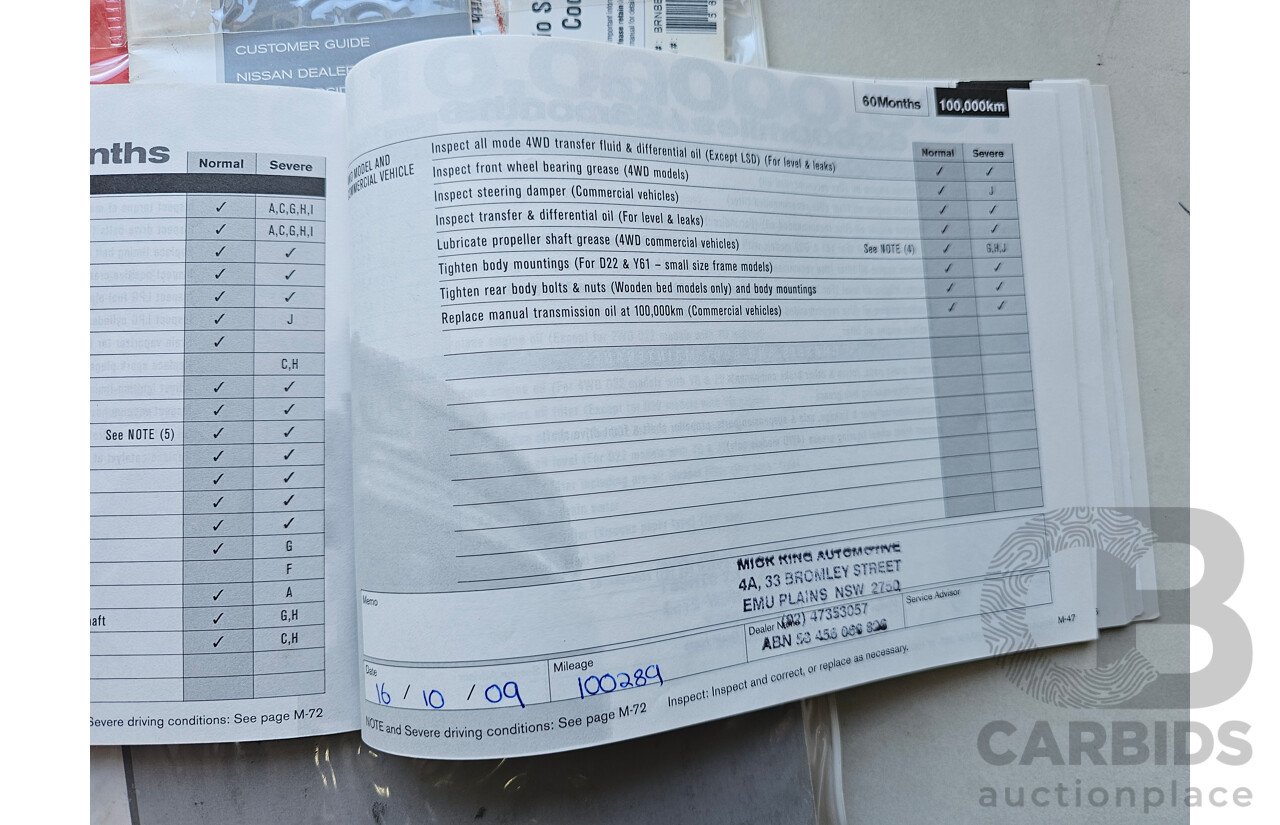 CUSTOMER GUIDE
NISSAN DEALER
nths
Normal Severe
✓ A,C,G,H,I
✓ A,C,G,H,I
✓ ✓
✓ ✓
✓ ✓
✓ J
✓
C,H
✓ ✓
✓ ✓
See NOTE (5) ✓ ✓
✓ ✓
✓ ✓
✓ ✓
✓ ✓
✓ G
F
✓ A
haft ✓ G,H
✓ C,H
Severe driving conditions: See page M-72
60Months 100,000km
Normal Severe
MODEL AND
COMMERCIAL VEHICLE
Inspect all mode 4WD transfer fluid & differential oil (Except LSD) (For level & leaks) ✓ ✓
Inspect front wheel bearing grease (4WD models) ✓ J
Inspect steering damper (Commercial vehicles) ✓ ✓
Inspect transfer & differential oil (For level & leaks) ✓ ✓
Lubricate propeller shaft grease (4WD commercial vehicles) See NOTE (4) ✓ G,H,J
Tighten body mountings (For D22 & Y61 – small size frame models) ✓ ✓
Tighten rear body bolts & nuts (Wooden bed models only) and body mountings ✓ ✓
Replace manual transmission oil at 100,000km (Commercial vehicles) ✓ ✓
Memo
MICK KING AUTOMOTIVE
4A, 33 BROMLEY STREET
EMU PLAINS NSW 2750
(02) 47353057
Dealer
ABN
Service Advisor
Date
16 / 10 / 09
Mileage
100289
M-47
NOTE and Severe driving conditions: See page M-72
Inspect: Inspect and correct, or replace as necessary.
CARBIDS
auctionplace